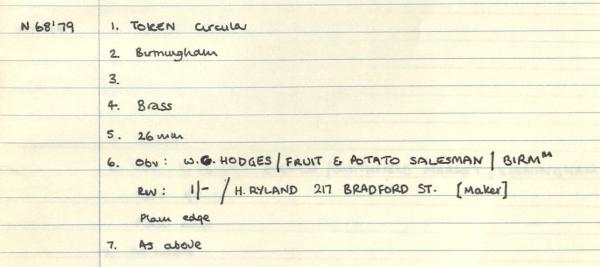 N 68'79 1. TOKEN Circula
2. Birmingham
3.
4. Brass
5. 26mm
6. Obv: W.G. HODGES / FRUIT & POTATO SALESMAN / BIRMᴹ
Rev: 1/- / H. RYLAND 217 BRADFORD ST. [Maker]
Plain edge
7. As above